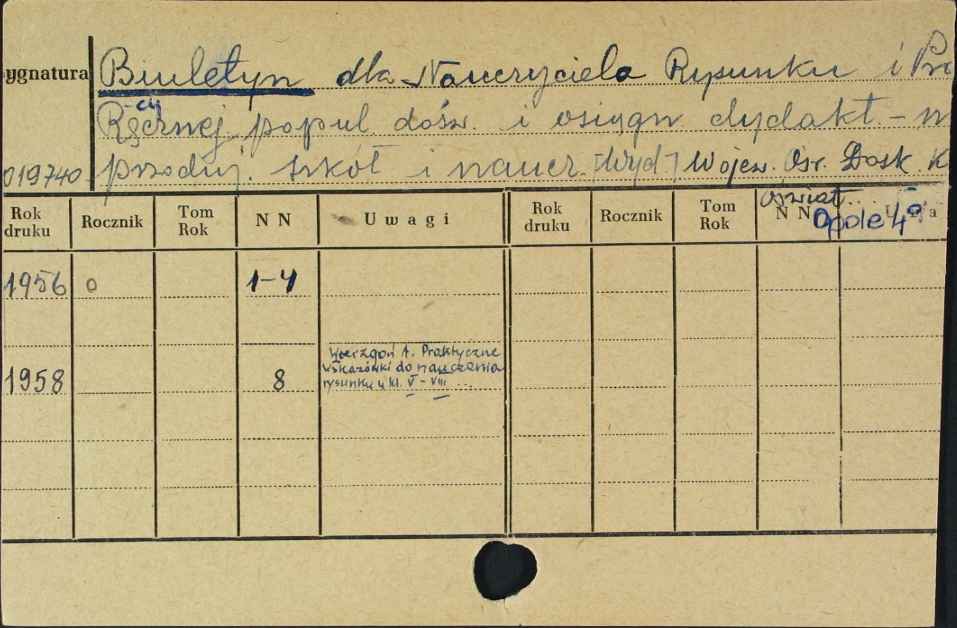 ygnatura Biuletyn dla Nauczyciela Rysunku i Pra
Ręcznej popul. dośw. i osiągn dydakt. - w
019740 przoduj. szkół i naucz. [Wyd] Wojew. Ośr. Dosk. K
Oświat...
Opole 4°
Rok druku Rocznik Tom Rok N N Uwagi Rok druku Rocznik Tom Rok N N
1956 0 1-4
1958 8 A. Praktyczne
wskazówki do nauczania
rysunku w kl. V-VIII ...